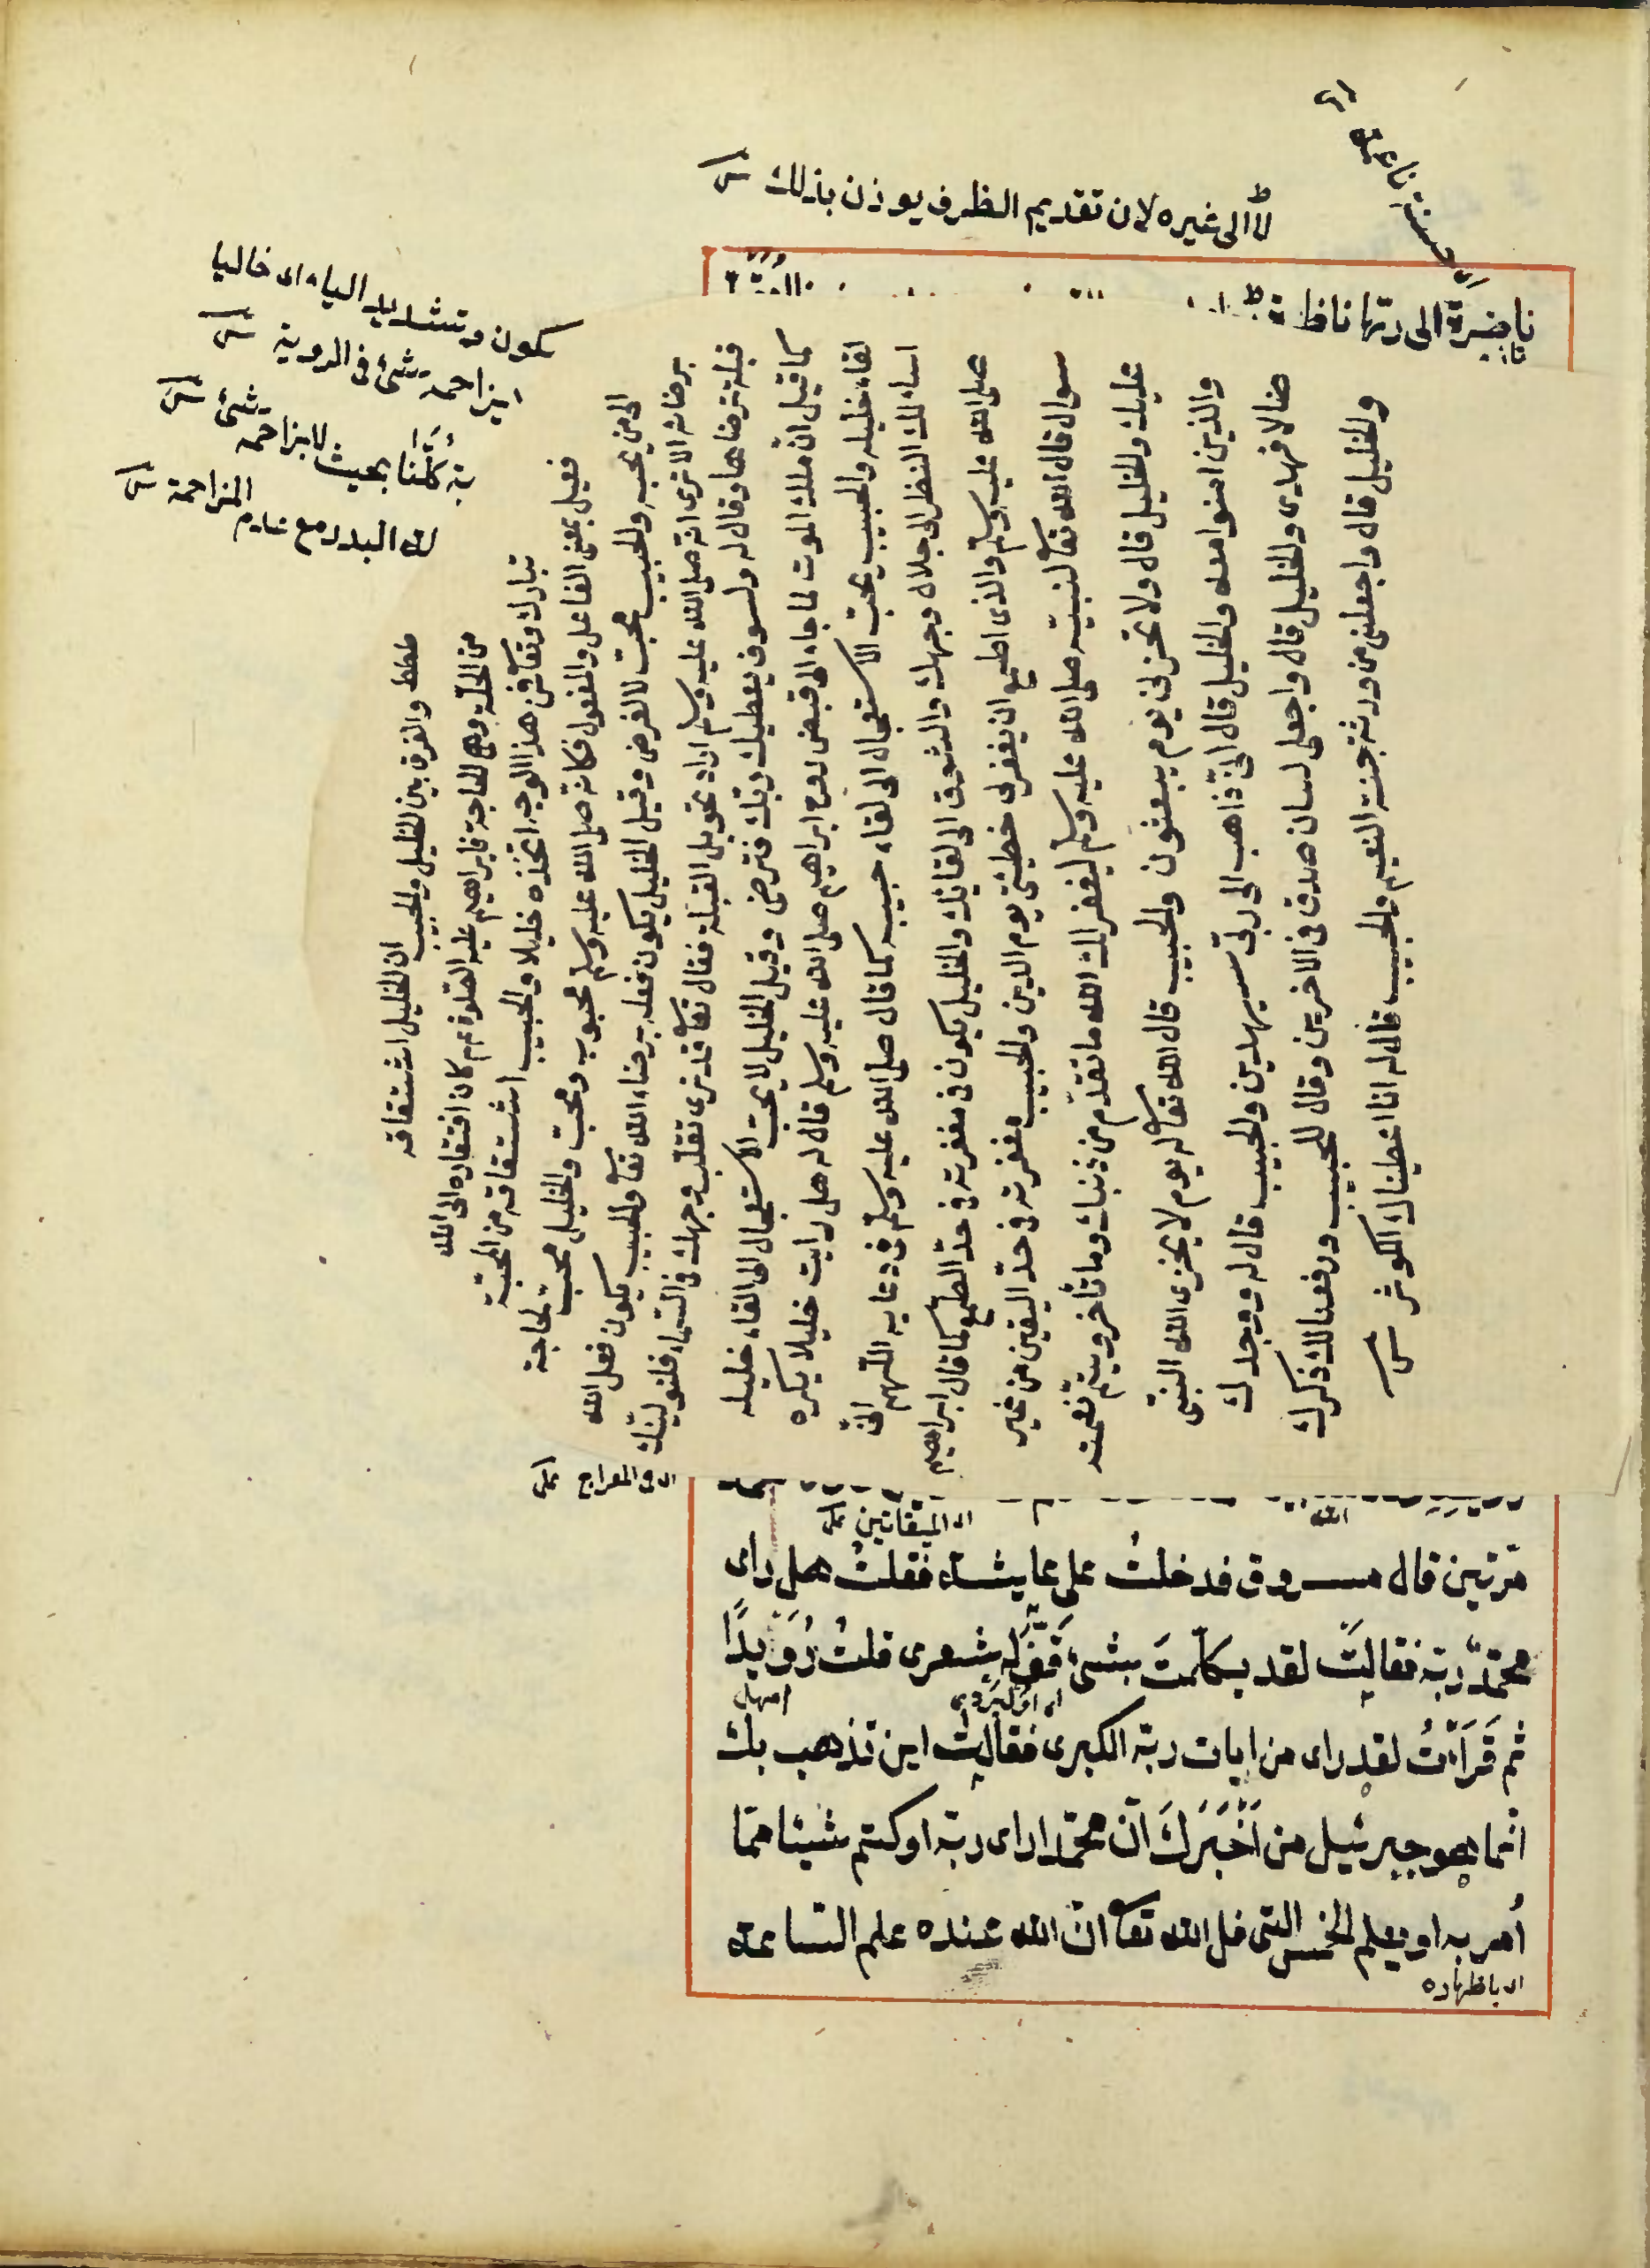 لا الى غيره لان تقديم الظرف يوذن بذلك
ناضرة الى ربها ناظرة
كون وتشديد الياء اى خاليا
شئ فى الروية
بحيث لا يزاحمه شئ
البدر مع عدم المزاحمة
ططط والفرق بين الخليل والحبيب ان الخليل اشتقاقه
من الخلة وهى الحاجة فابراهيم عليه الصلوة عم كان افتقاره الى الله
تبارك وتعا فمن هذا الوجه اتخذه خليلا والحبيب اشتقاقه من المحبة
فعيل بمعنى الفاعل والمفعول فكانه صلى الله عليه وسلم محبوب ومحب والخليل محب لحاجة
الى من يحبه والحبيب محب لا لغرض وقيل الخليل يكون فعله برضاء الله تعا والحبيب يكون فعل الله
برضائه الا ترى انه صلى الله عليه وسلم اراد تحويل القبلة فقال تعا قد نرى تقلب وجهك فى السماء فلنولينك
قبلة ترضاها وقال له ولسوف يعطيك ربك فترضى وقيل الخليل لا يحب الاستعجال الى لقاء خليله
كما قيل ان ملك الموت لما جاء الى قبض روح ابراهيم صلى الله عليه وسلم قال له هل رايت خليلا يكره
لقاء خليله والحبيب يحب الاستعجال الى لقاء حبيبه كما قال صلى الله عليه وسلم فى دعايه اللهم انى
اسالك النظر الى جلال وجهك والشوق الى لقايك والخليل يكون فى مغفرته فى حد الطمع كما قال ابراهيم
صلى الله عليه وسلم والذى اطمع ان يغفر لى خطيئتى يوم الدين والحبيب مغفرته فى حد اليقين من غير
سوال قال الله تعا لنبيه صلى الله عليه وسلم ليغفر لك الله ما تقدم من ذنبك وما تأخر ويتم نعمته
عليك والخليل قال ولا تخزنى يوم يبعثون والحبيب قال الله تعا له يوم لا يخزى الله النبى
والذين امنوا معه والخليل قال انى ذاهب الى ربى سيهدين والحبيب قال له ووجدك
ضالا فهدى والخليل قال واجعل لى لسان صدق فى الاخرين وقال للحبيب ورفعنا لك ذكرك
والخليل قال واجعلنى من ورثة جنة النعيم والحبيب قال له انا اعطيناك الكوثر
المعراج
الميقاتين
مرتين قال مسروق فدخلت على عايشة فقلت هل راى
محمد ربه فقالت لقد تكلمت بشئ قف له شعرى قلت رويدا
ثم قرأت لقد راى من ايات ربه الكبرى فقالت اين تذهب بك
انما هو جبرئيل من اخبرك ان محمدا راى ربه او كتم شيئا مما
أمر به او يعلم الخمس التى قال الله تعا ان الله عنده علم الساعة
اى باظهاره